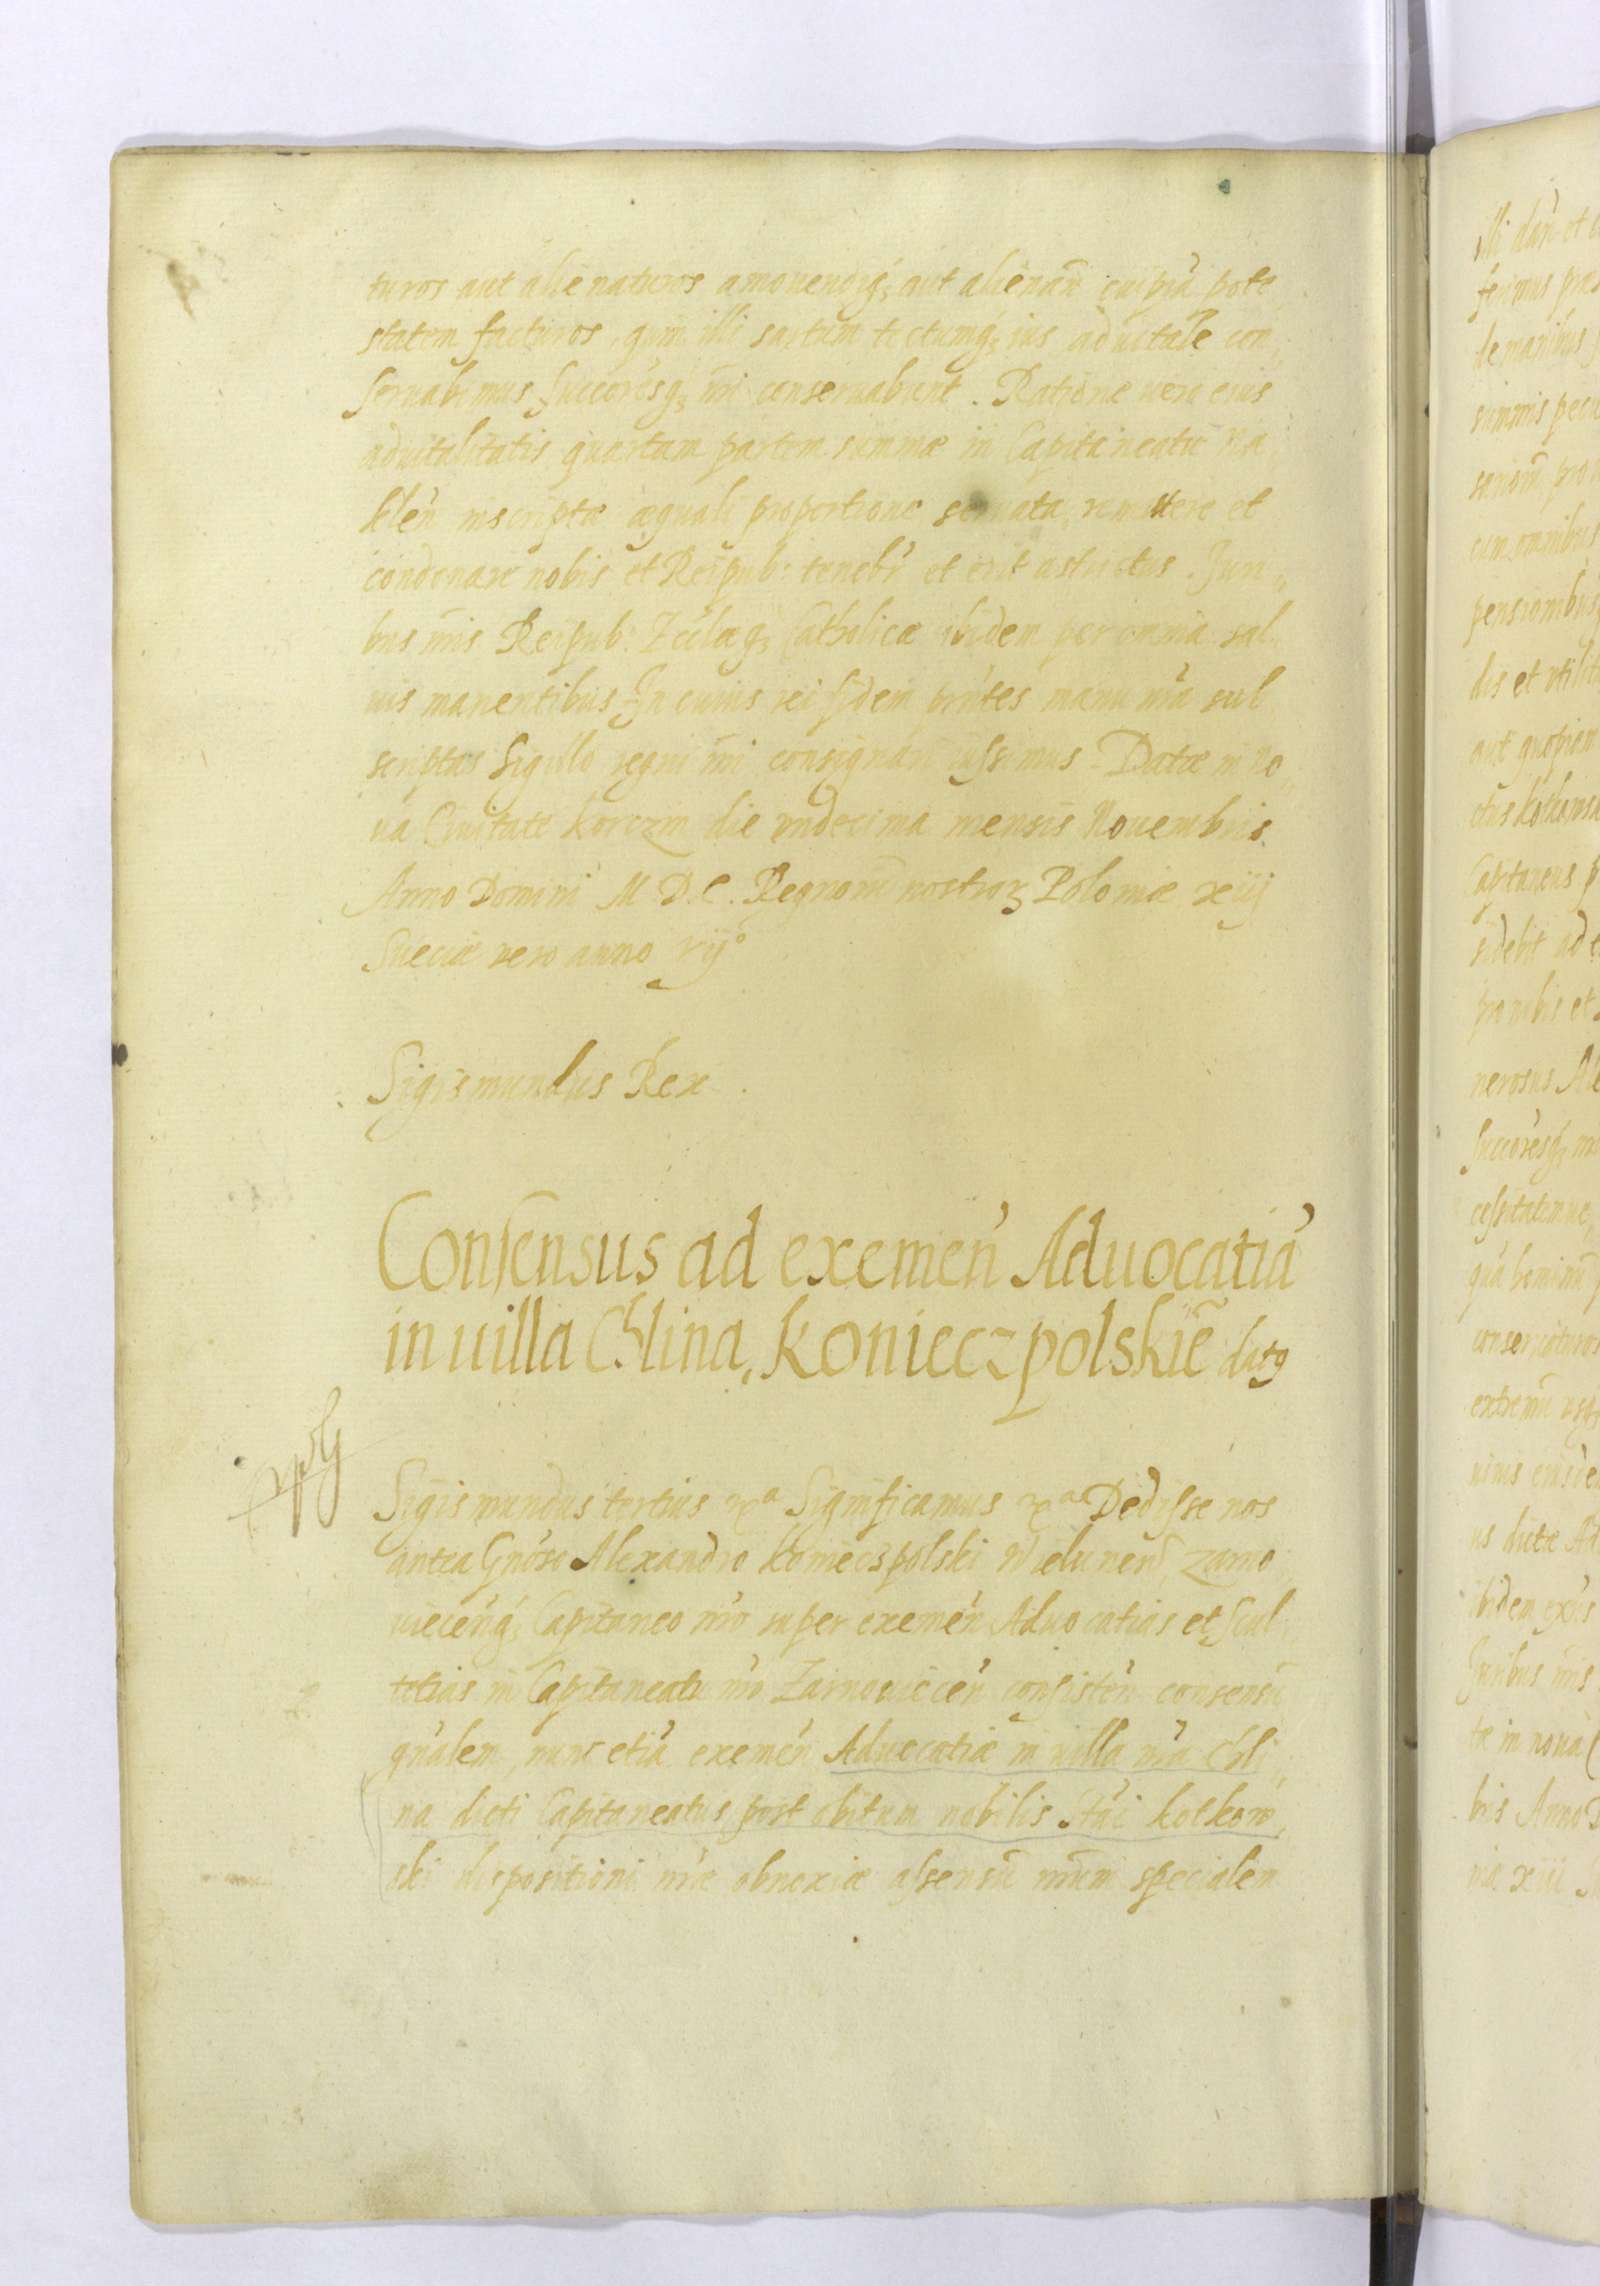 turos aut alienaturos amouendiq₃ aut alienan̄ cuipiā pote
statem facturos, quin illi sartum tectumq₃ ius aduitale con„
seruabimus Succoresq₃ nr̄i conseruabunt. Ratione uero eius
aduitalitatis quartam partem summæ in Capitaneatu Na„
klen̄ inscriptæ æquali proportione seruata, remittere et
condonare nobis et Reipub: teneb̄r et erit astrictus. Juri„
bus nr̄is Reipub: Ecclæq₃ Catholicæ ibidem per omnia sal„
uis manentibus. In cuius rei fidem pr̄ntes manu nr̄a sub„
scriptas Sigillo regni nr̄i consignari iussimus. Datæ in No„
ua Ciuitate Korczin die vndecima mensis Nouembris.
Anno Domini M D.C. Regnorū nostroꝝ Poloniæ xiij
Sueciæ vero anno vijº
Sigismundus Rex.
Consensus ad exemen̄ Aduocatiā
in uilla Chlina, Konieczpolskiē datꝰ
Sigismundus tertius &ᵃ Significamus &ᵃ Dedisse nos
antea Gn̄oso Alexandro Koniecpolski Wielunen̄, Zarno„
uiecen̄q₃ Capitaneo nr̄o super exemen̄ Aduocatias et Scul„
tetias in Capitaneatu nr̄o Zarnouiecen̄ consisten̄ consensū
gn̄alem, nunc etiā exemen̄ Aduocatiæ in uilla nr̄a Chli„
na dicti Capitaneatus post obitum nobilis Stāi Kotkow„
ski dispositioni nr̄æ obnoxiæ assensū nr̄um specialem
illi
ferimus
de manibus
summis
cum omnibus
pensionibus
dis et vtilit
aut quopiam
Capitaneus p
sidebit ad
pro nobis et
nerosus Ale
Succoresq₃
conseruaturos
ibidem
Juribus nr̄is
tæ in noua C
bris Anno D
niæ xiij